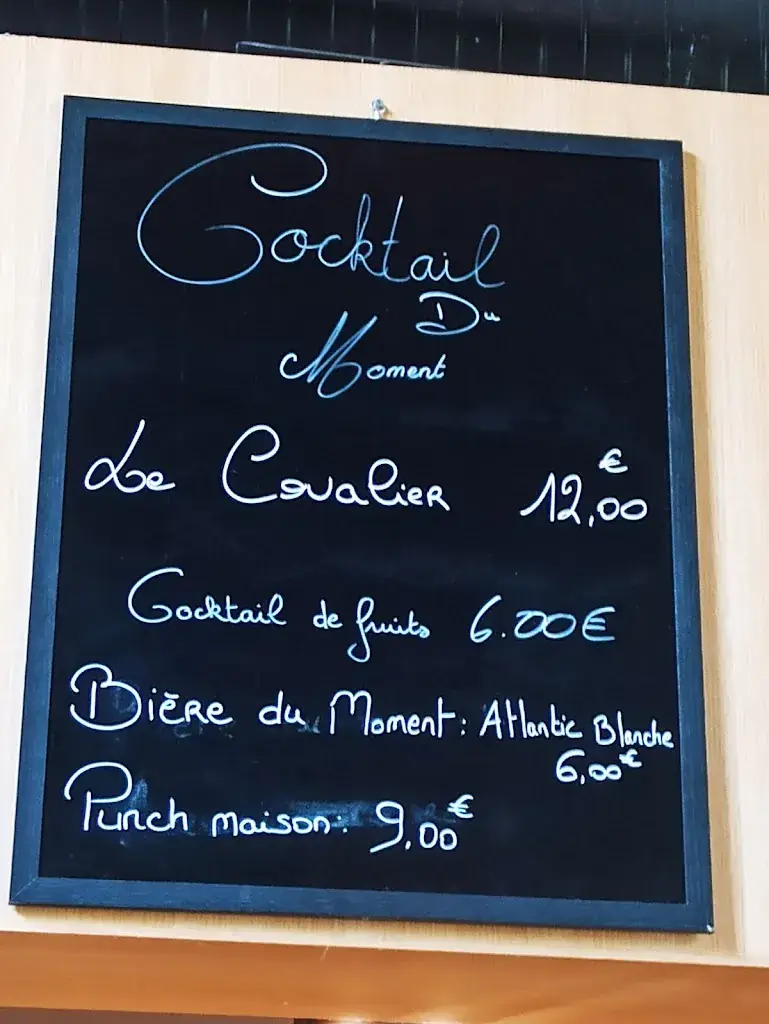 Cocktail
Du
Moment
Le Cavalier 12,00€
Cocktail de fruits 6.00€
Bière du Moment: Atlantic Blanche
6,00€
Punch maison: 9,00€